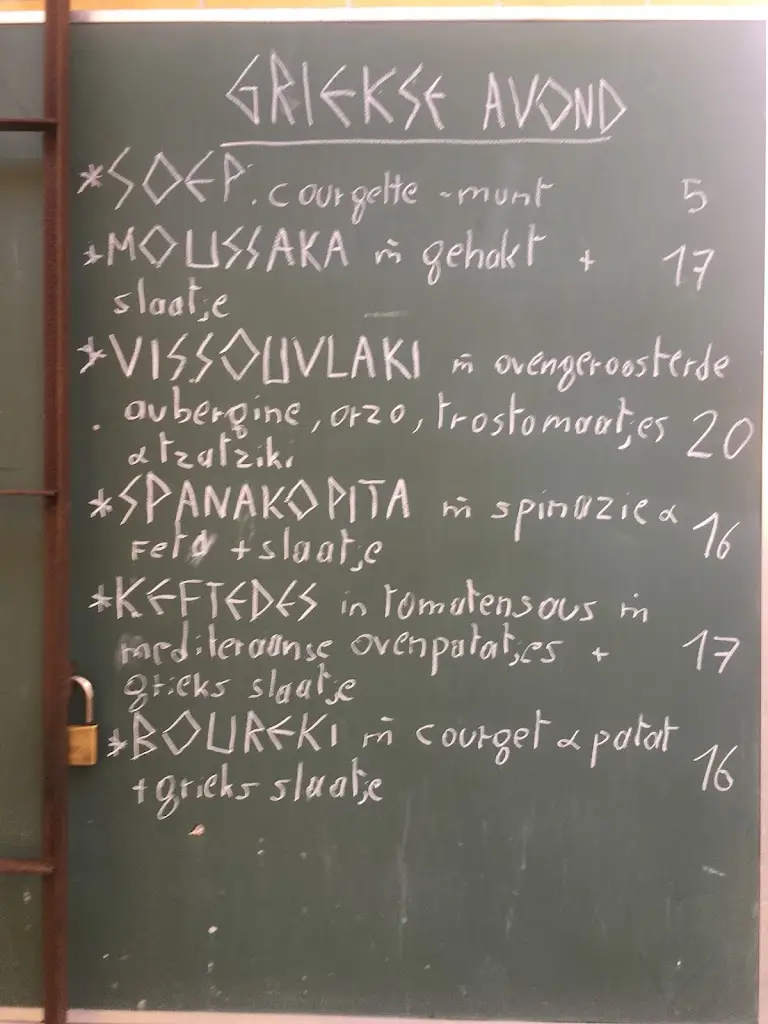 GRIEKSE AVOND
*SOEP: courgette - munt 5
*MOUSSAKA m̄ gehakt + 17
slaatje
*VISSOUVLAKI m̄ ovengeroosterde
aubergine, orzo, trostomaatjes 20
& tzatziki
*SPANAKOPITA m̄ spinazie & 16
feta + slaatje
*KEFTEDES in tomatensaus m̄
mediteraanse ovenpatatjes + 17
grieks slaatje
*BOUREKI m̄ courget & patat 16
+ grieks slaatje